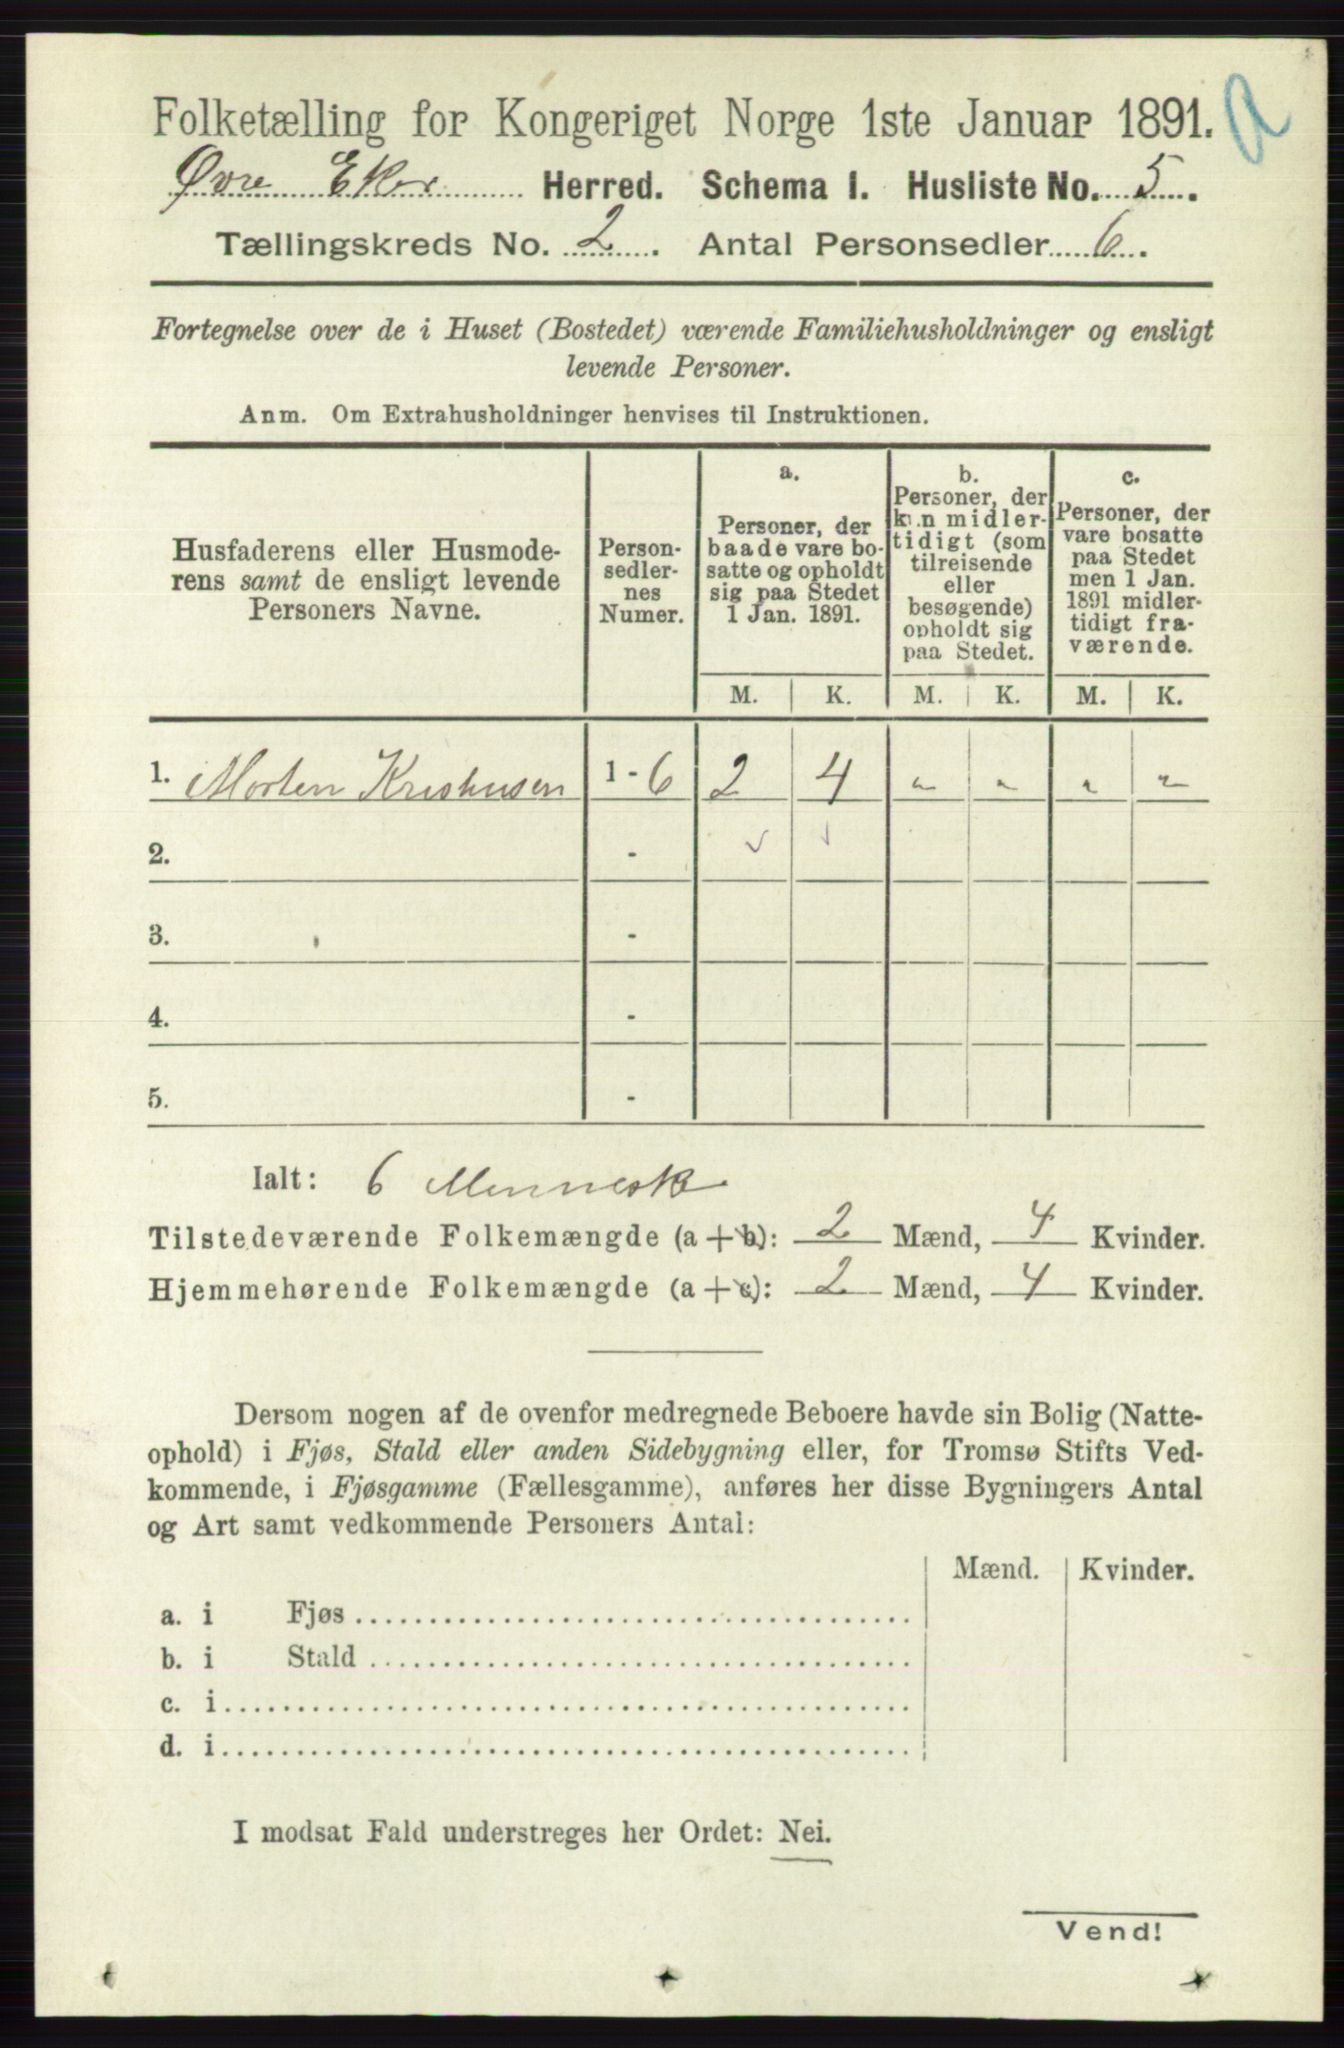 Folketælling for Kongeriget Norge 1ste Januar 1891.
Øvre Eker Herred. Schema I. Husliste No. 5.
Tællingskreds No. 2. Antal Personsedler 6.
Fortegnelse over de i Huset (Bostedet) værende Familiehusholdninger og ensligt
levende Personer.
Anm. Om Extrahusholdninger henvises til Instruktionen.
Husfaderens eller Husmode-
rens samt de ensligt levende
Personers Navne.
Person-
sedler-
nes
Numer.
a.
Personer, der
baade vare bo-
satte og opholdt
sig paa Stedet
1 Jan. 1891.
b.
Personer, der
kun midler-
tidigt (som
tilreisende
eller
besøgende)
opholdt sig
paa Stedet.
c.
Personer, der
vare bosatte
paa Stedet
men 1 Jan.
1891 midler-
tidigt fra-
værende.
M. K. M. K. M. K.
1. Morten 1 - 6 2 4 " " " "
2. -
3. -
4. -
5. -
Ialt: 6 Mennesk
Tilstedeværende Folkemængde (a + b): 2 Mænd, 4 Kvinder.
Hjemmehørende Folkemængde (a + c): 2 Mænd, 4 Kvinder.
Dersom nogen af de ovenfor medregnede Beboere havde sin Bolig (Natte-
ophold) i Fjøs, Stald eller anden Sidebygning eller, for Tromsø Stifts Ved-
kommende, i Fjøsgamme (Fællesgamme), anføres her disse Bygningers Antal
og Art samt vedkommende Personers Antal:
Mænd. Kvinder.
a. i Fjøs
b. i Stald
c. i
d. i
I modsat Fald understreges her Ordet: Nei.
Vend!